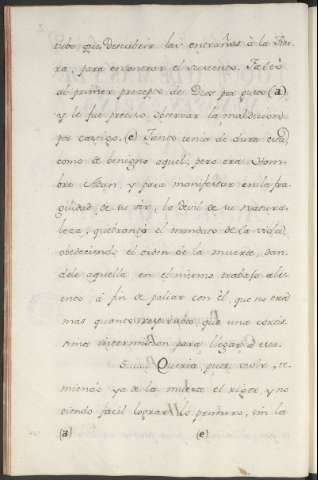 tubo que descubrir las entrañas à la tier-
ra, para encontrar el sustento. Faltò
al primer precepto de Dios por gusto (a)
y le fue preciso observar la maldicion
por castigo. (e) Tanto tenia de dura esta
como de benigno aquel; pero era Hom-
bre Adan, y para manifestar en la fra-
gilidad de su ser, lo devil de su natura-
leza, quebrantò el mandato de la vida,
obedeciendo el orden de la muerte, dan-
dole aquella en el mismo trabajo alie-
nto à fin de paliar con èl, que no era
mas quanto respiraba, que una cortis-
sima intermision para llegar à esta.
Queria pues vivir, te-
miendo ya de la muerte el golpe, y no
siendo facil lograr lo primero, sin la
(a) (e)